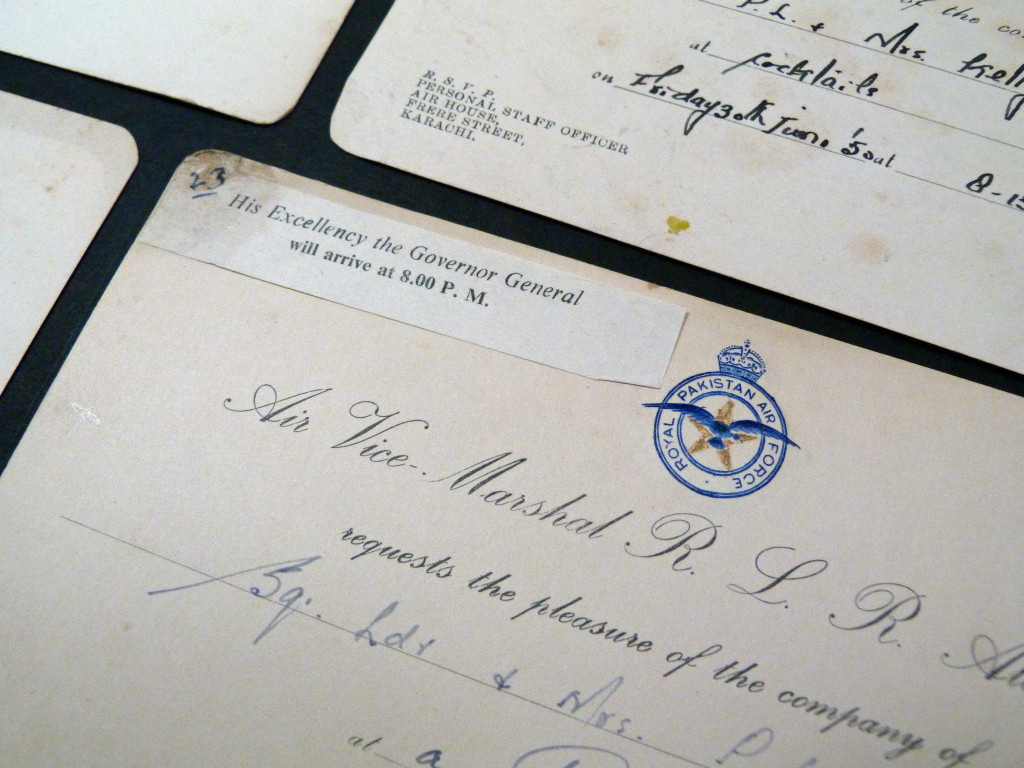 of the co
P. L. & Mrs. Kelly
at Cocktails
on Friday 30th June, '50 at 8-15
R. S. V. P.
PERSONAL STAFF OFFICER
AIR HOUSE,
FRERE STREET,
KARACHI.
23
His Excellency the Governor General
will arrive at 8.00 P. M.
ROYAL PAKISTAN AIR FORCE
Air Vice-Marshal R. L. R. At
requests the pleasure of the company of
Sq. Ldr & Mrs. P.
at a